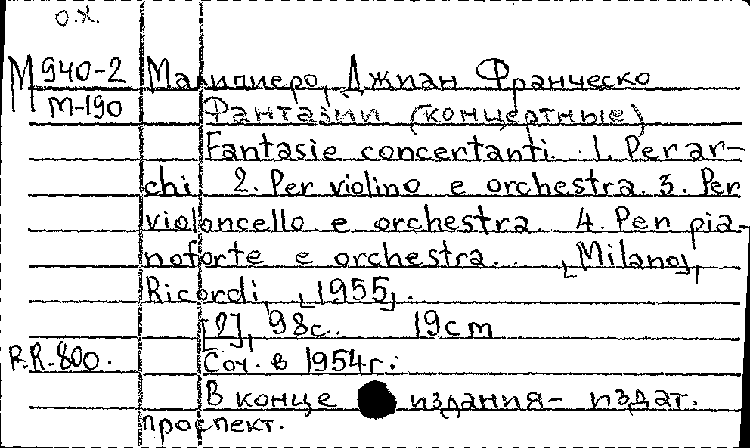 О.Х.
М 940-2 Малипиеро, Джиан Франческо
М-190 Фантазии (концертные)
Fantasie concertanti. 1. Per ar-
chi 2. Per violino e orchestra. 3. Per
violoncello e orchestra. 4. Pen pia-
noforte e orchestra. [Milano],
Ricordi, [1955].
[2], 98с. 19cm
R.R-800. Соч. в 1954г.
В конце издания- издат.
проспект.